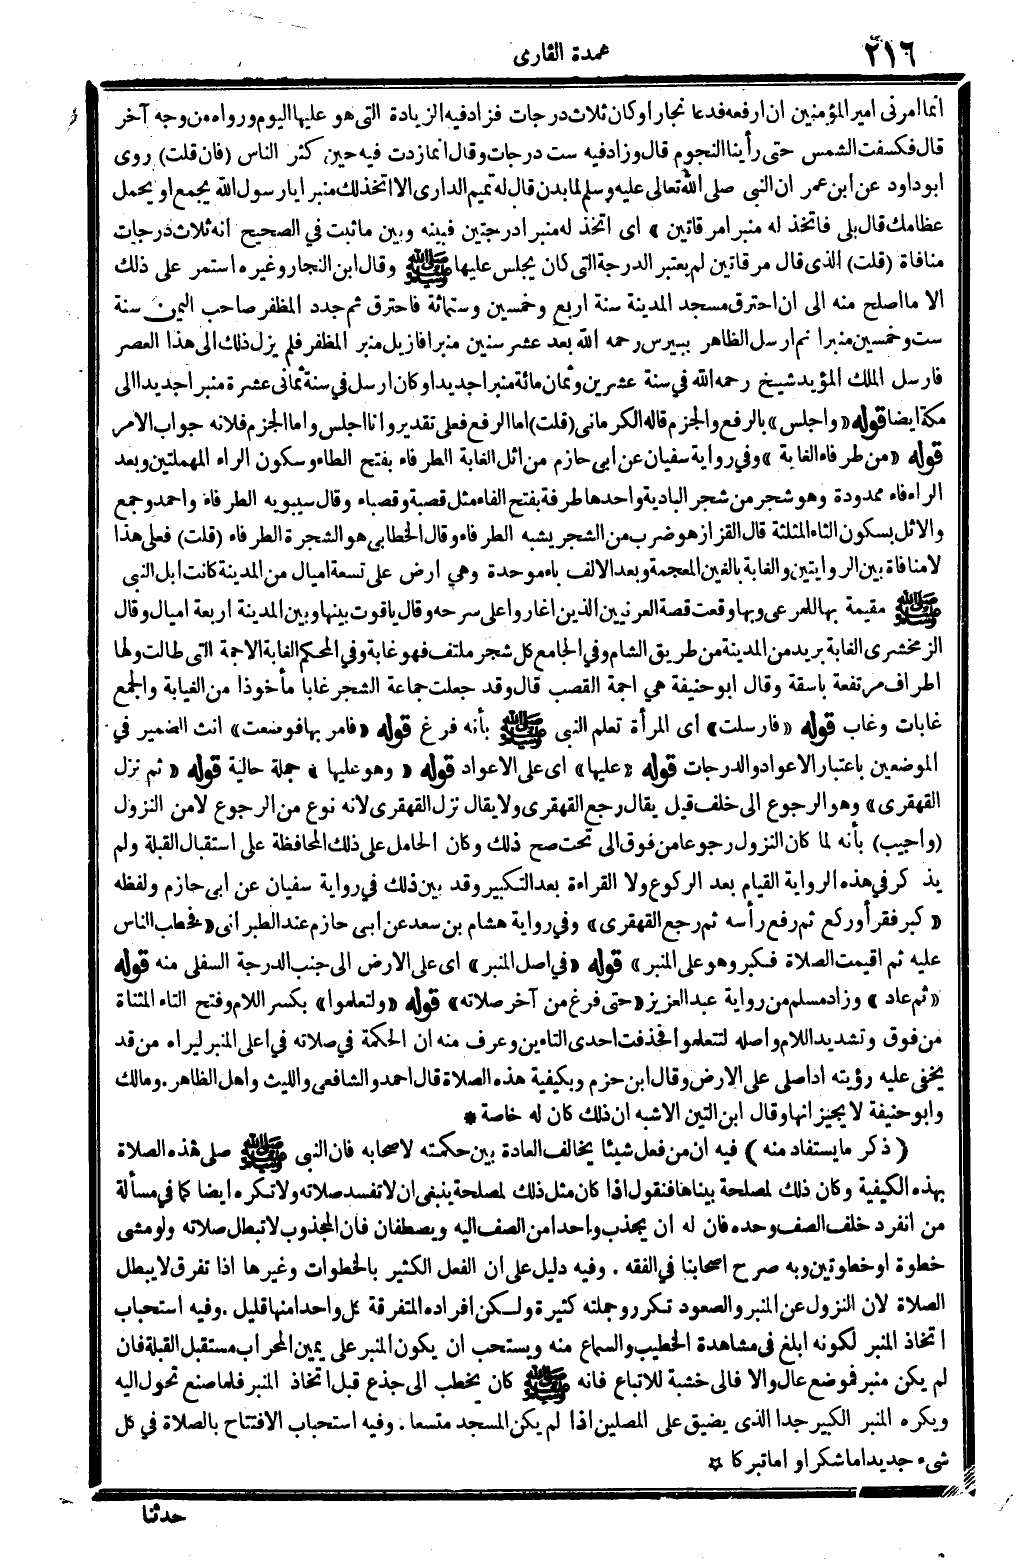 ٢١٦
عمدة القارى
انما امرنى امير المؤمنين ان ارفعه فدعا نجارا وكان ثلاث درجات فزاد فيه الزيادة التى هو عليها اليوم ورواه من وجه آخر
قال فكسفت الشمس حتى رأينا النجوم قال وزاد فيه ست درجات وقال انما زدت فيه حين كثر الناس (فان قلت) روى
ابو داود عن ابن عمر ان النبى صلى الله تعالى عليه وسلم لما بدن قال له تميم الدارى الا اتخذ لك منبرا يا رسول الله يجمع او يحمل
عظامك قال بلى فاتخذ له منبرا مرقاتين » اى اتخذ له منبرا درجتين فبينه وبين ما ثبت في الصحيح انه ثلاث درجات
منافاة (قلت) الذى قال مرقاتين لم يعتبر الدرجة التى كان يجلس عليها ﷺ وقال ابن النجار وغيره استمر على ذلك
الا ما اصلح منه الى ان احترق مسجد المدينة سنة اربع وخمسين وستمائة فاحترق ثم جدد المظفر صاحب اليمن سنة
ست وخمسين منبرا ثم ارسل الظاهر بيبرس رحمه الله بعد عشر سنين منبرا فازيل منبر المظفر فلم يزل ذلك الى هذا العصر
فارسل الملك المؤيد شيخ رحمه الله في سنة عشرين وثمان مائة منبرا جديدا وكان ارسل في سنة ثمانى عشرة منبرا جديدا الى
مكة ايضا قوله «واجلس» بالرفع والجزم قاله الكرمانى (قلت) اما الرفع فعلى تقدير وانا اجلس واما الجزم فلانه جواب الامر
قوله «من طرفاء الغابة» وفي رواية سفيان عن ابى حازم من اثل الغابة الطرفاء بفتح الطاء وسكون الراء المهملتين وبعد
الراء فاء ممدودة وهو شجر من شجر البادية واحدها طرفة بفتح الفاء مثل قصبة وقصباء وقال سيبويه الطرفاء واحد وجمع
والاثل بسكون الثاء المثلثة قال القزاز هو ضرب من الشجر يشبه الطرفاء وقال الخطابى هو الشجرة الطرفاء (قلت) فعلى هذا
لا منافاة بين الروايتين والغابة بالغين المعجمة وبعد الالف باء موحدة وهي ارض على تسعة اميال من المدينة كانت ابل النبى
ﷺ مقيمة بها للمرعى وبها وقعت قصة العرنيين الذين اغاروا على سرحه وقال ياقوت بينها وبين المدينة اربعة اميال وقال
الزمخشرى الغابة بريد من المدينة من طريق الشام وفي الجامع كل شجر ملتف فهو غابة وفي المحكم الغابة الاجمة التى طالت ولها
اطراف مرتفعة باسقة وقال ابو حنيفة هي اجمة القصب قال وقد جعلت جماعة الشجر غابا مأخوذا من الغيابة والجمع
غابات وغاب قوله «فارسلت» اى المرأة تعلم النبى ﷺ بأنه فرغ قوله «فامر بها فوضعت» انث الضمير في
الموضعين باعتبار الاعواد والدرجات قوله «عليها» اى على الاعواد قوله « وهو عليها » جملة حالية قوله « ثم نزل
القهقرى» وهو الرجوع الى خلف قيل يقال رجع القهقرى ولا يقال نزل القهقرى لانه نوع من الرجوع لا من النزول
(واجيب) بأنه لما كان النزول رجوعا من فوق الى تحت صح ذلك وكان الحامل على ذلك المحافظة على استقبال القبلة ولم
يذكر في هذه الرواية القيام بعد الركوع ولا القراءة بعد التكبير وقد بين ذلك في رواية سفيان عن ابى حازم ولفظه
« كبر فقرأ وركع ثم رفع رأسه ثم رجع القهقرى» وفي رواية هشام بن سعد عن ابى حازم عند الطبرانى «فخطب الناس
عليه ثم اقيمت الصلاة فكبر وهو على المنبر» قوله «في اصل المنبر» اى على الارض الى جنب الدرجة السفلى منه قوله
«ثم عاد» وزاد مسلم من رواية عبد العزيز «حتى فرغ من آخر صلاته» قوله «ولتعلموا» بكسر اللام وفتح التاء المثناة
من فوق وتشديد اللام واصله لتتعلموا فحذفت احدى التاءين وعرف منه ان الحكمة في صلاته في اعلى المنبر ليراه من قد
يخفى عليه رؤيته اذا صلى على الارض وقال ابن حزم وبكيفية هذه الصلاة قال احمد والشافعى والليث واهل الظاهر . ومالك
وابو حنيفة لا يجيزانها وقال ابن التين الاشبه ان ذلك كان له خاصة *
( ذكر ما يستفاد منه ) فيه ان من فعل شيئا يخالف العادة بين حكمته لاصحابه فان النبى ﷺ صلى هذه الصلاة
بهذه الكيفية وكان ذلك لمصلحة بيناها فنقول اذا كان مثل ذلك لمصلحة ينبغى ان لا تفسد صلاته ولا تكره ايضا كما في مسألة
من انفرد خلف الصف وحده فان له ان يجذب واحدا من الصف اليه ويصطفان فان المجذوب لا تبطل صلاته ولو مشى
خطوة او خطوتين وبه صرح اصحابنا في الفقه . وفيه دليل على ان الفعل الكثير بالخطوات وغيرها اذا تفرق لا يبطل
الصلاة لان النزول عن المنبر والصعود تكرر وجملته كثيرة ولكن افراده المتفرقة كل واحد منها قليل . وفيه استحباب
اتخاذ المنبر لكونه ابلغ في مشاهدة الخطيب والسماع منه ويستحب ان يكون المنبر على يمين المحراب مستقبل القبلة فان
لم يكن منبر فموضع عال والا فالى خشبة للاتباع فانه ﷺ كان يخطب الى جذع قبل اتخاذ المنبر فلما صنع تحول اليه
ويكره المنبر الكبير جدا الذى يضيق على المصلين اذا لم يكن المسجد متسعا . وفيه استحباب الافتتاح بالصلاة في كل
شىء جديد اما شكرا و اما تبركا ☆
حدثنا